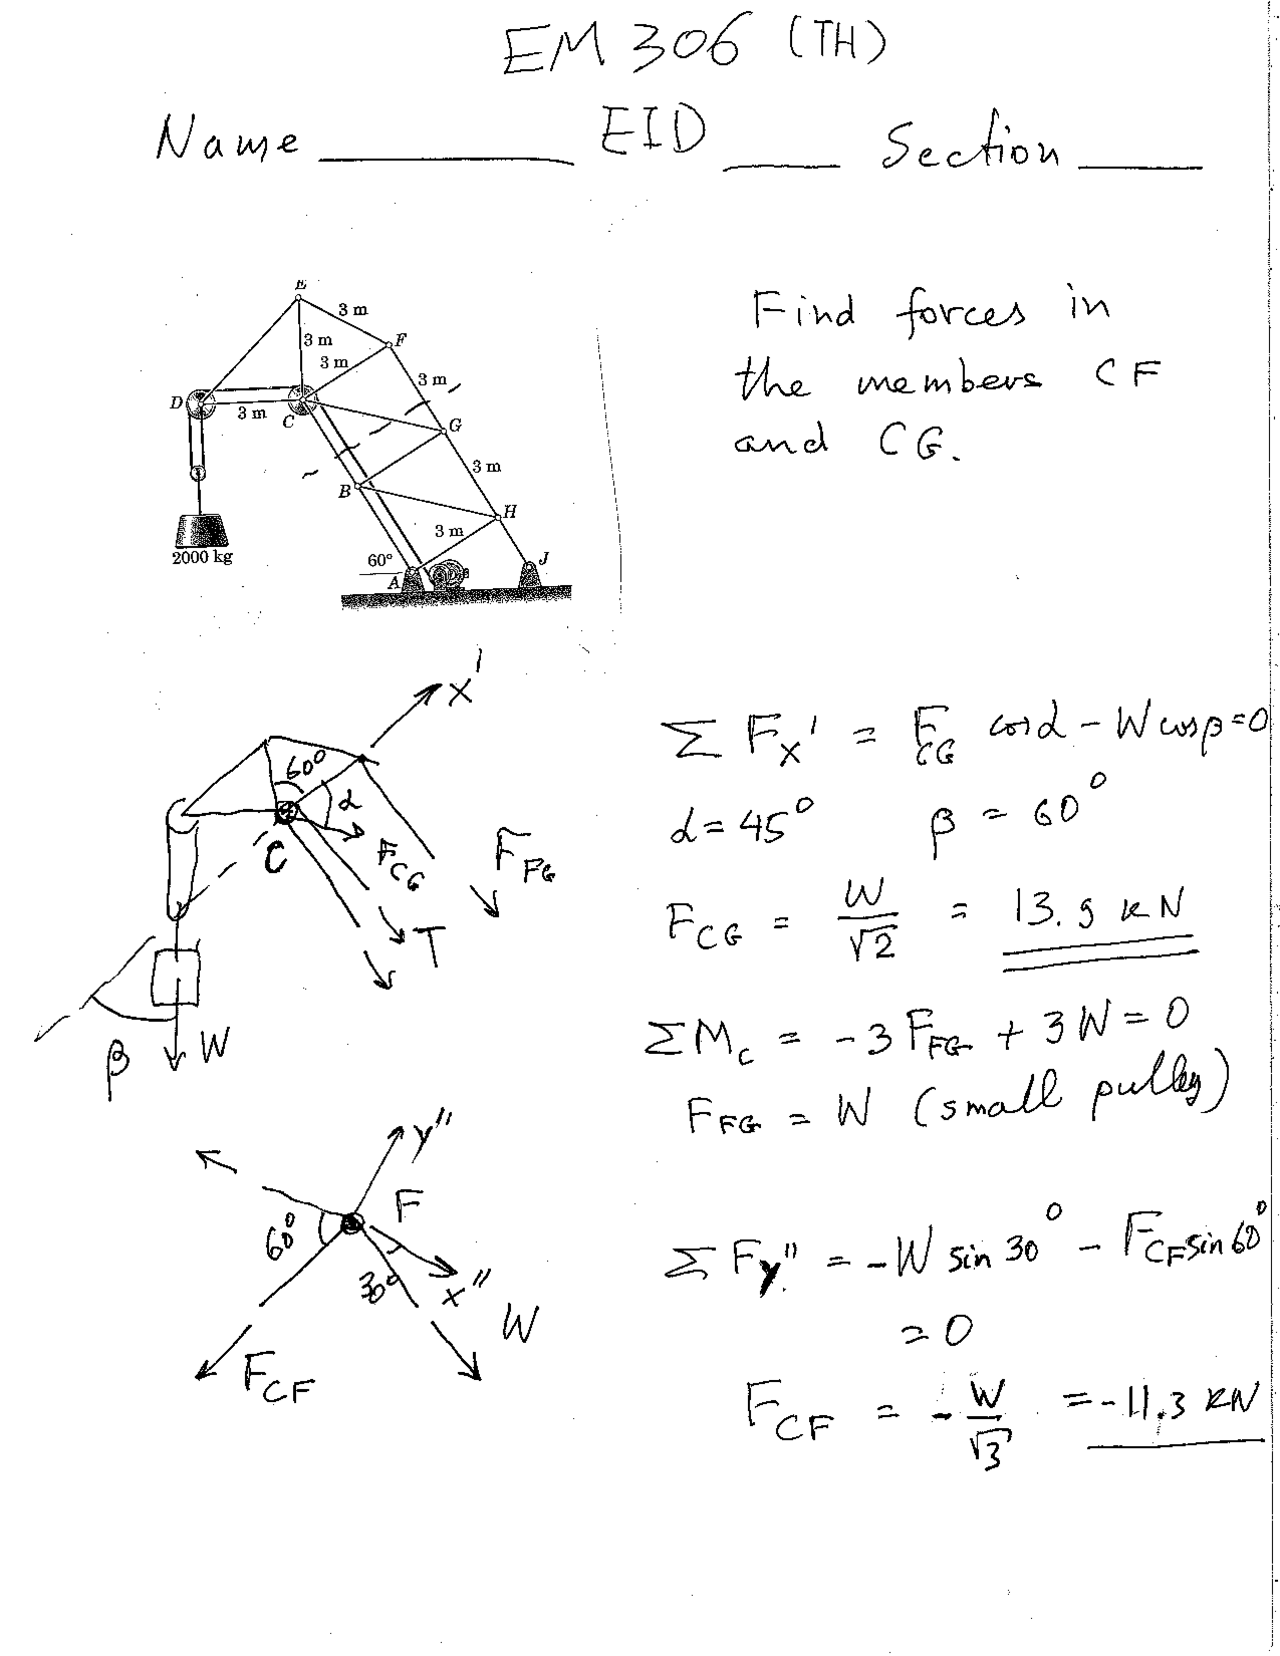 EM 306 (TH)
Name ________ EID ____ Section ____
E
3 m
3 m
F
3 m
3 m
D
3 m
C
G
3 m
B
H
3 m
2000 kg
60°
A
J
Find forces in
the members CF
and CG.
x'
60°
α
C
F_CG
F_FG
T
β
W
Σ F_x' = F_CG cos α - W cos β = 0
α = 45° β = 60°
F_CG = W/√2 = 13.9 kN
Σ M_c = -3 F_FG + 3 W = 0
F_FG = W (small pulley)
y''
F
60°
30°
x''
W
F_CF
Σ F_y'' = -W sin 30° - F_CF sin 60°
= 0
F_CF = - W/√3 = -11.3 kN